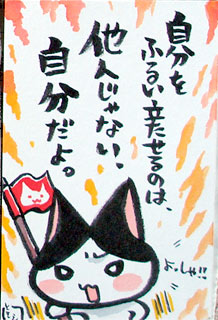 自分を
ふるい立たせるのは、
他人じゃない、
自分だよ。
よっしゃ!!